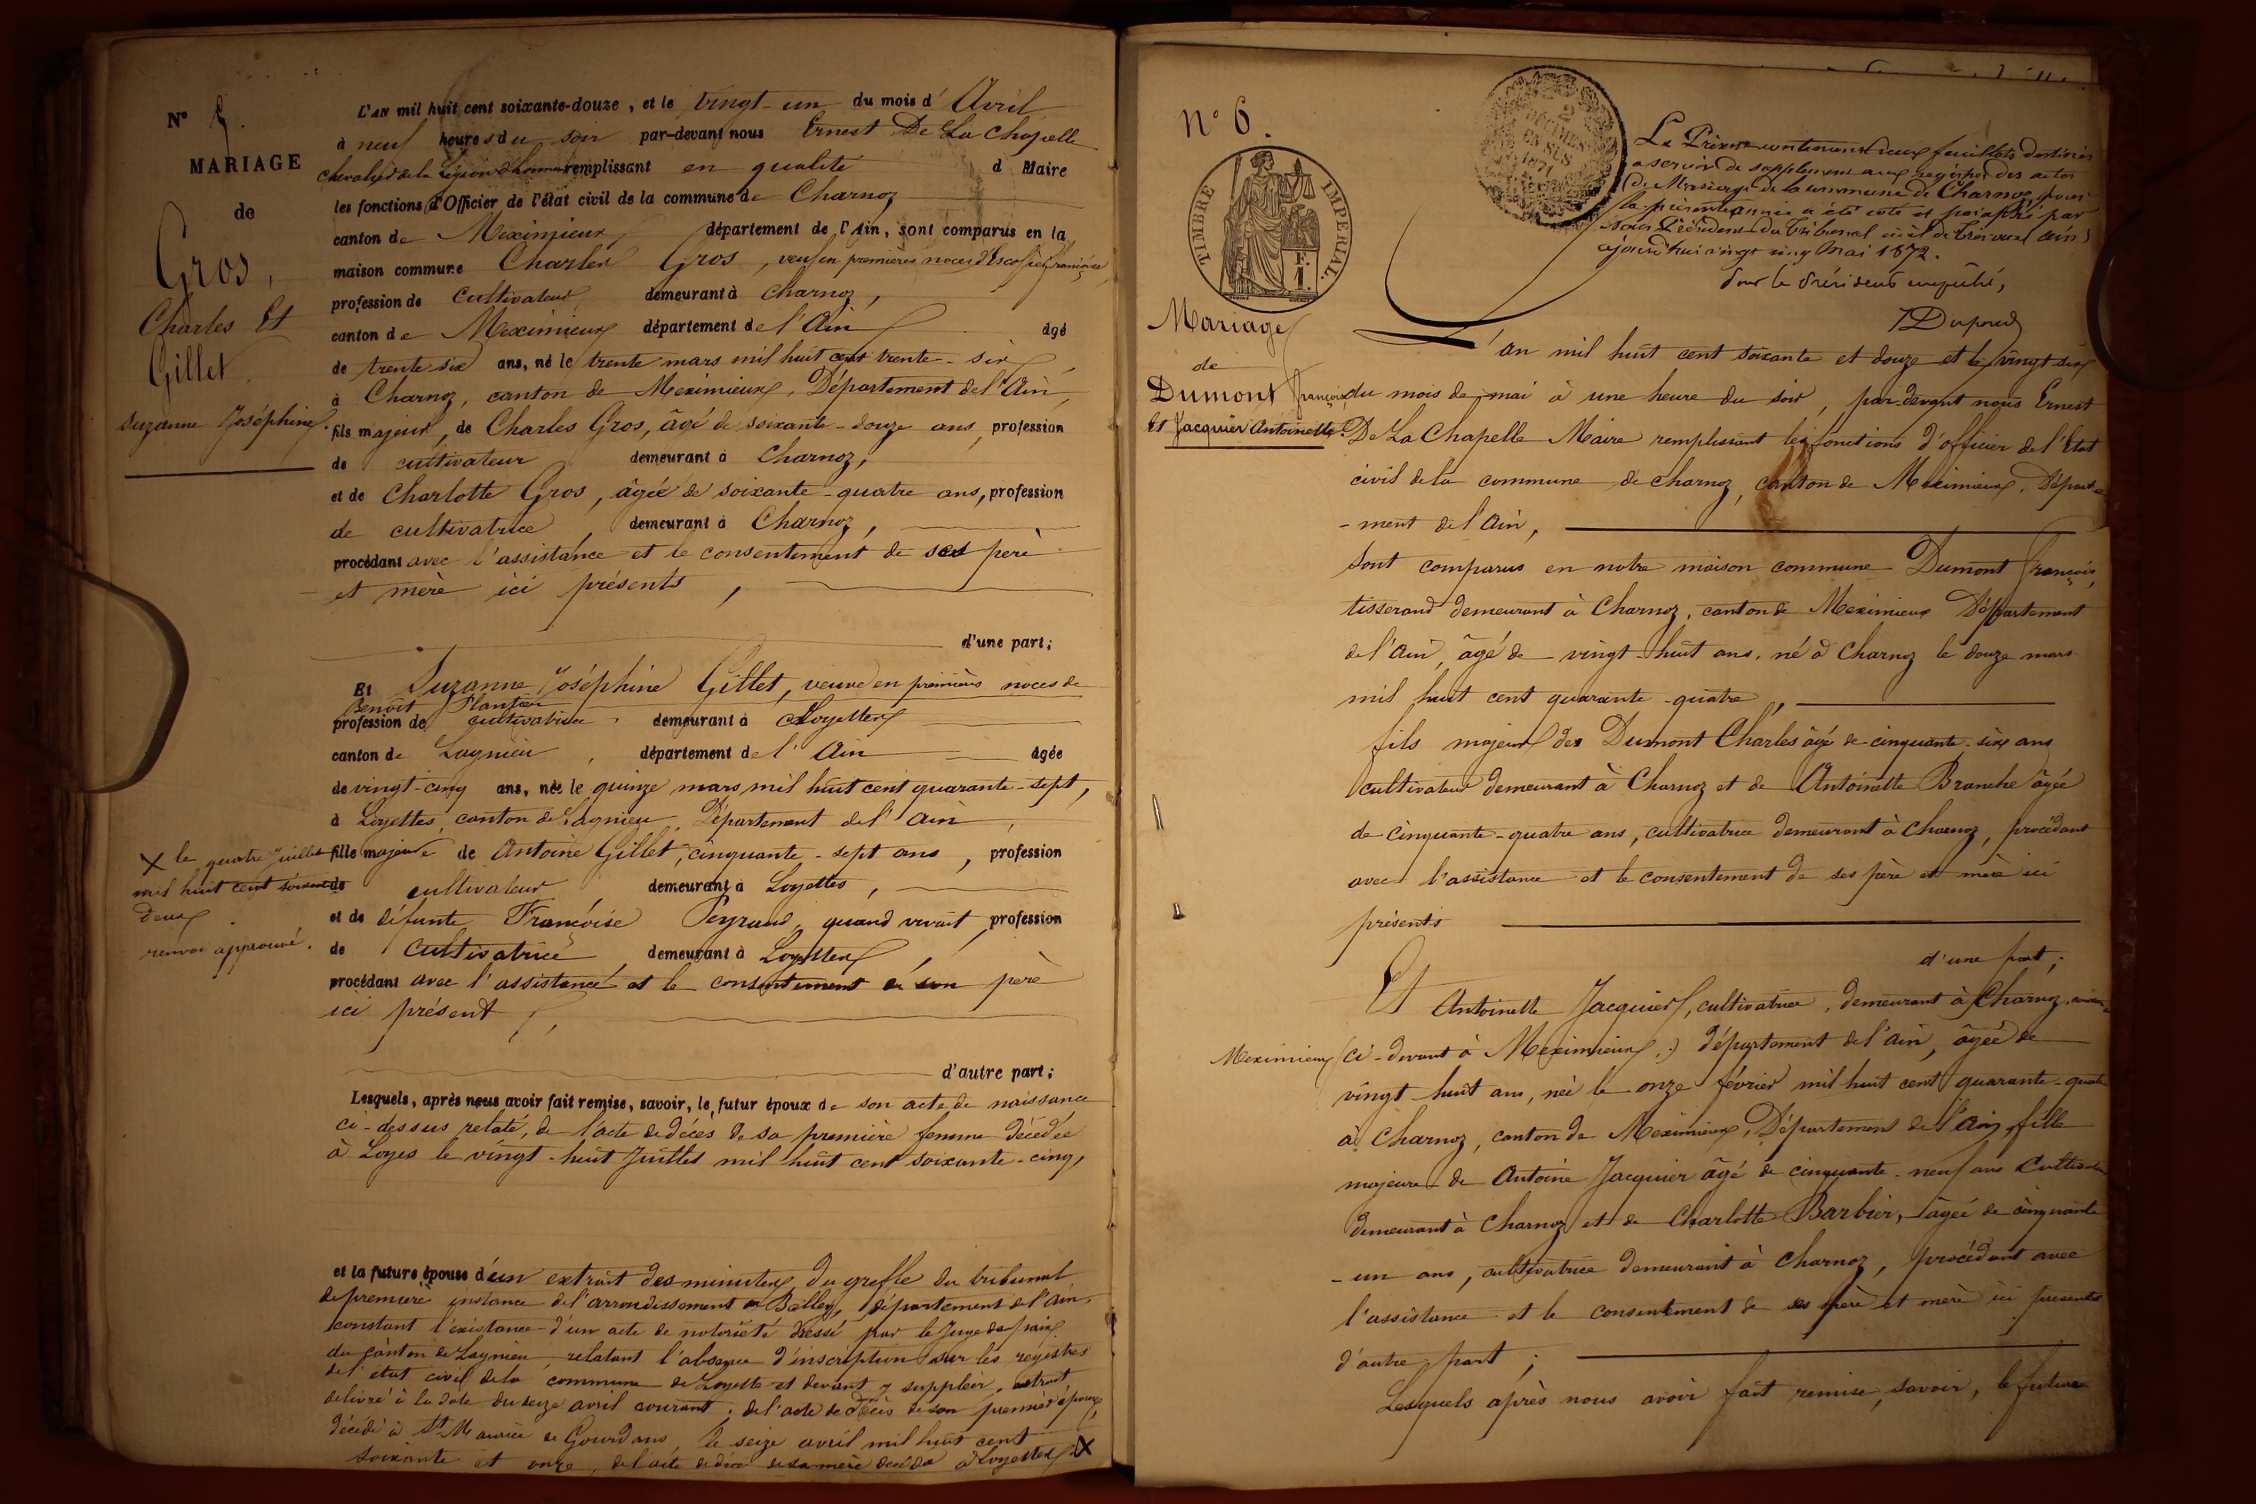 N° 5.
MARIAGE
de
Gros,
Charles Et
Gillet
Suzanne Joséphine.
L'AN mil huit cent soixante-douze, et le vingt-un du mois d'Avril
à neuf heures du soir par-devant nous Ernest De La Chapelle
chevalier de la Légion d'honneur remplissant en qualité d Maire
les fonctions d'Officier de l'état civil de la commune de Charnoz
canton de Meximieux département de l'Ain, sont comparus en la
maison commune Charles Gros, veuf en premières noces d' Françoise
profession de cultivateur demeurant à Charnoz,
canton de Meximieux département de l'Ain âgé
de trente six ans, né le trente mars mil huit cent trente-six
à Charnoz, canton de Meximieux, Département de l'Ain,
fils majeur, de Charles Gros, âgé de soixante-douze ans, profession
de cultivateur demeurant à Charnoz,
et de Charlotte Gros, âgée de soixante-quatre ans, profession
de cultivatrice, demeurant à Charnoz,
procédant avec l'assistance et le consentement de ses père
et mère ici présents,
d'une part;
Et Suzanne Joséphine Gillet, veuve en premières noces de
Benoit Plantier
profession de cultivatrice demeurant à Loyettes
canton de Lagnieu, département de l'Ain âgée
de vingt-cinq ans, née le quinze mars mil huit cent quarante-sept,
à Loyettes, canton de Lagnieu, Département de l'Ain,
fille majeure de Antoine Gillet, cinquante-sept ans, profession
de cultivateur demeurant à Loyettes,
et de défunte Françoise Peyraud, quand vivait, profession
de cultivatrice demeurant à Loyettes,
procédant avec l'assistance et le consentement de son père
ici présent,
d'autre part;
X le quatre juillet
mil huit cent soixante
deux
renvoi approuvé.
Lesquels, après nous avoir fait remise, savoir, le futur époux de son acte de naissance
ci-dessus relaté, de l'acte de décès de sa première femme décédée
à Loyes le vingt-huit Juillet mil huit cent soixante-cinq,
et la future épouse d'un extrait des minutes du greffe du tribunal
de première instance de l'arrondissement de Belley, département de l'Ain,
constant l'existance d'un acte de notoriété dressé par le Juge de paix
du canton de Lagnieu, relatant l'absence d'inscription sur les registres
de l'état civil de la commune de Loyette et devant y suppléer, extrait
délivré à la date du seize avril courant; de l'acte de décès de son premier époux,
décédé à St Maurice de Gourdans, le seize avril mil huit cent
soixante et onze, de l'acte de décès de sa mère décédée à Loyettes X
n° 6.
TIMBRE IMPERIAL.
1 F.
2
DÉCIMES
EN SUS
1871
Le Présent contenant deux feuillets destinés
a servir de supplément aux registres des actes
de Mariage de la commune de Charnoz pour
la présente année a été coté et paraphé par
nous Président du Tribunal civil de Trévoux (ain)
ajourd'hui vingt cinq Mai 1872.
Pour le Président empêché,
Mariage
de
Dumont françois
Et Jacquier Antoinette.
L'an mil huit cent soixante et douze et le vingt-six
du mois de mai à une heure du soir, par-devant nous Ernest
De La Chapelle Maire remplissant les fonctions d'officier de l'Etat
civil de la commune de Charnoz, canton de Meximieux, Départe
-ment de l'Ain,
Sont comparus en notre maison commune Dumont François,
tisserand demeurant à Charnoz, canton de Meximieux Département
de l'Ain, âgé de vingt-huit ans, né à Charnoz le douze mars
mil huit cent quarante-quatre,
fils majeur de Dumont Charles âgé de cinquante-six ans
cultivateur demeurant à Charnoz et de Antoinette Branche âgée
de cinquante-quatre ans, cultivatrice demeurant à Charnoz, procédant
avec l'assistance et le consentement de ses père et mère ici
présents
d'une part;
Et Antoinette Jacquier, cultivatrice, demeurant à Charnoz,
Meximieux (ci-devant à Meximieux,) département de l'ain, âgée de
vingt-huit ans, née le onze février mil huit cent quarante-quatre
à Charnoz, canton de Meximieux, Département de l'Ain, fille
majeure de Antoine Jacquier âgé de cinquante-neuf ans Cultivateur
demeurant à Charnoz et de Charlotte Barbier, âgée de cinquante
-un ans, cultivatrice demeurant à Charnoz, procédant avec
l'assistance et le consentement de ses père et mère ici présents
d'autre part;
Lesquels après nous avoir fait remise, savoir, le futur